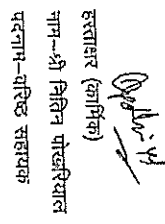 हस्ताक्षर (कार्मिक)
नाम–श्री नितिन पोखरियाल
पदनाम–वरिष्ठ सहायक